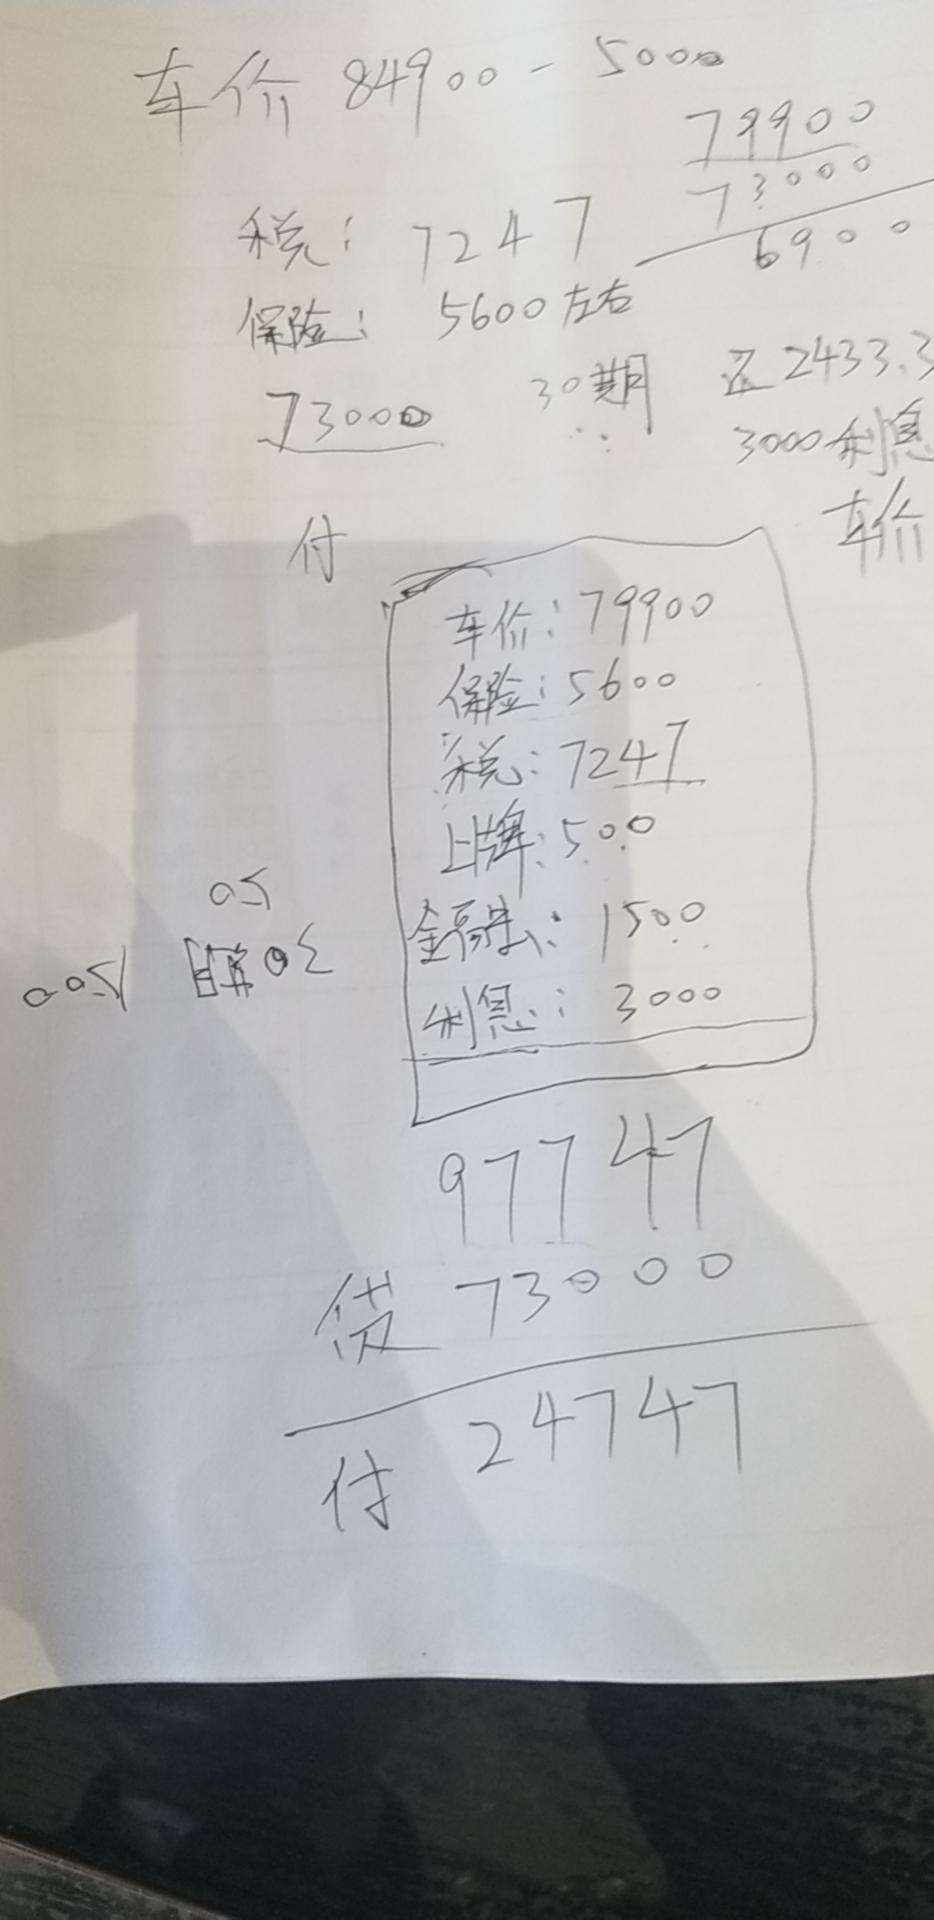 车价 84900 - 5000
79900
73000
6900
税: 7247
保险: 5600左右
73000 30期 还2433.3
3000利息
付 车价
车价: 79900
保险: 5600
税: 7247
上牌: 500
金融: 1500
利息: 3000
30期
97747
贷 73000
付 24747